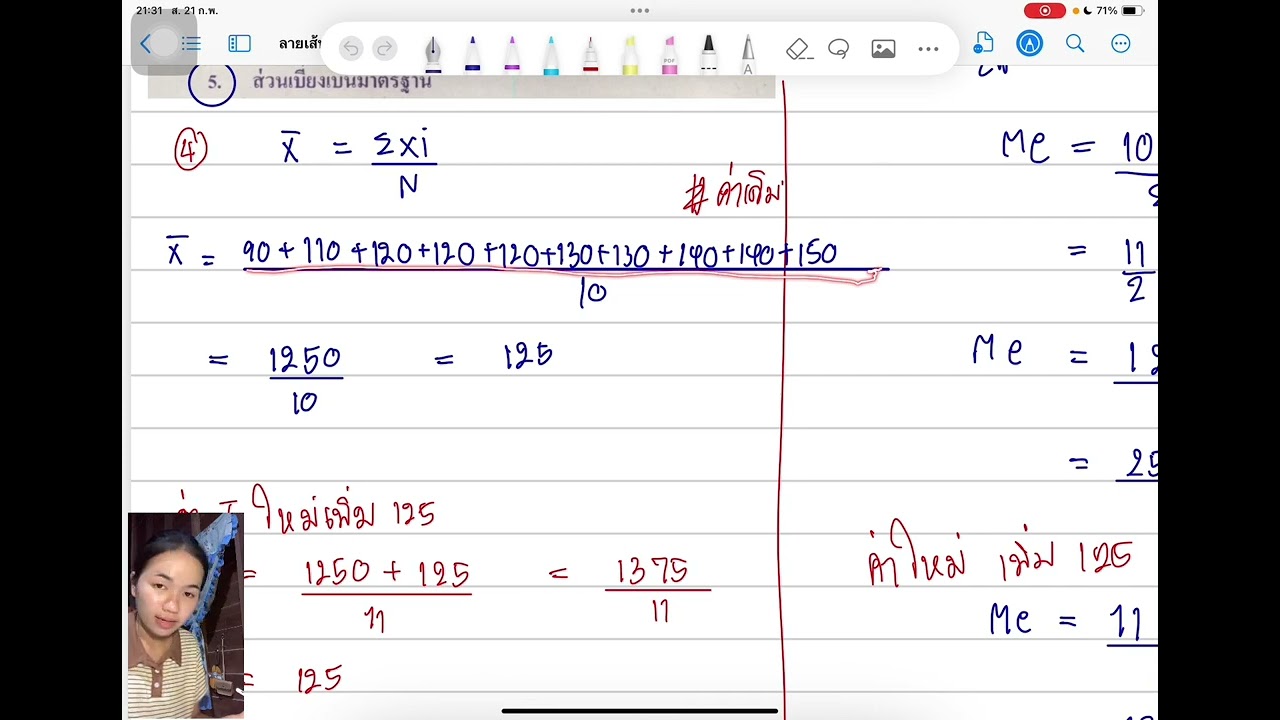 21:31 ส. 21 ก.พ.
71%
ลายเส้
PDF
A
5. ส่วนเบี่ยงเบนมาตรฐาน
4 x̄ = Σxi
N
# ค่าเดิม
x̄ = 90 + 110 + 120 + 120 + 120 + 130 + 130 + 140 + 140 + 150
10
= 1250 = 125
10
x̄ ใหม่เพิ่ม 125
= 1250 + 125 = 1375
11 11
= 125
Me = 10
= 11
2
Me = 12
= 25
ค่าใหม่ เพิ่ม 125
Me = 11